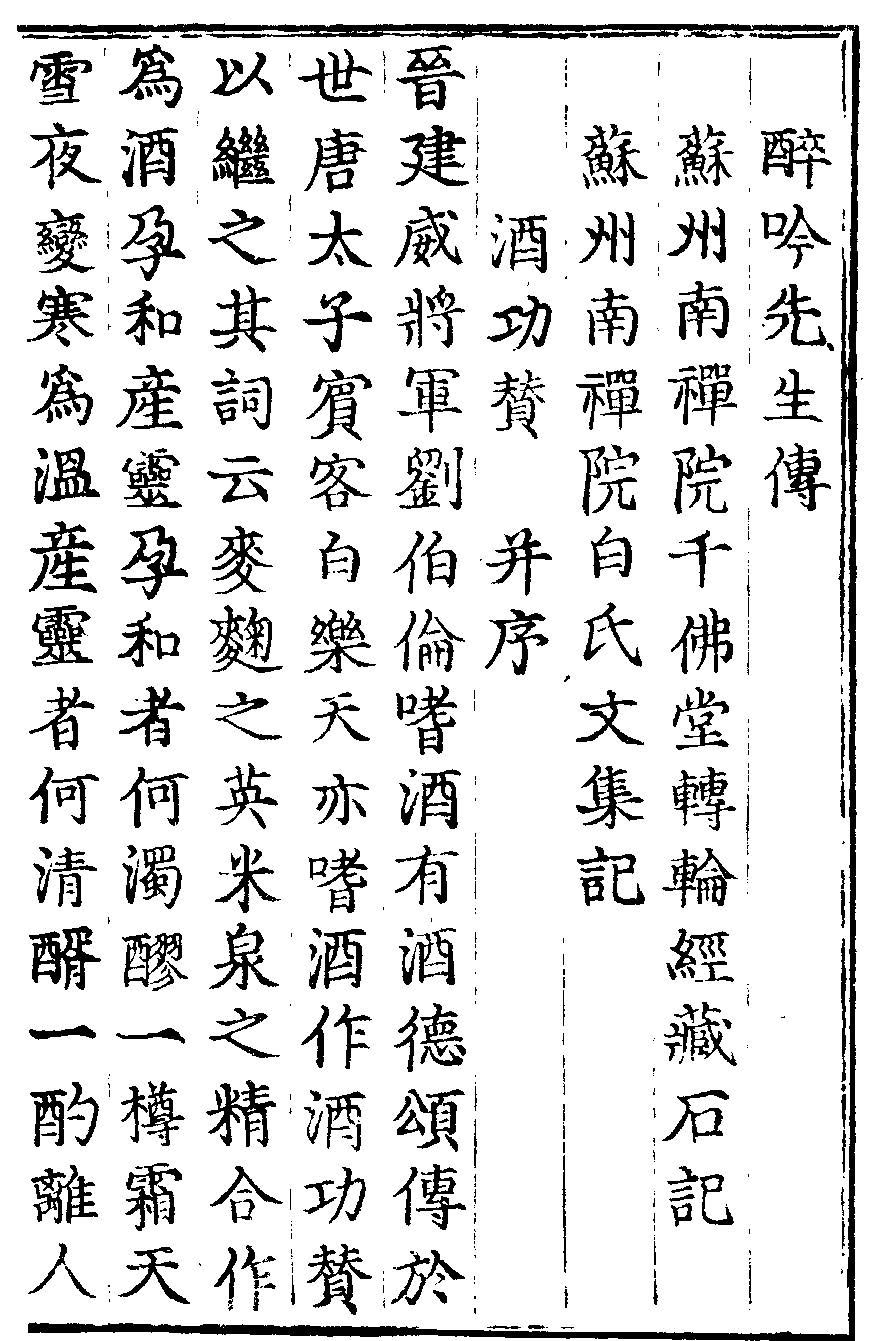 醉吟先生傳
蘇州南禪院千佛堂轉輪經藏石記
蘇州南禪院白氏文集記
酒功贊 并序
晉建威將軍劉伯倫嗜酒有酒德頌傳於
世唐太子賓客白樂天亦嗜酒作酒功贊
以繼之其詞云麥麴之英米泉之精合作
爲酒孕和產靈孕和者何濁醪一樽霜天
雪夜變寒爲溫產靈者何清醑一酌離人